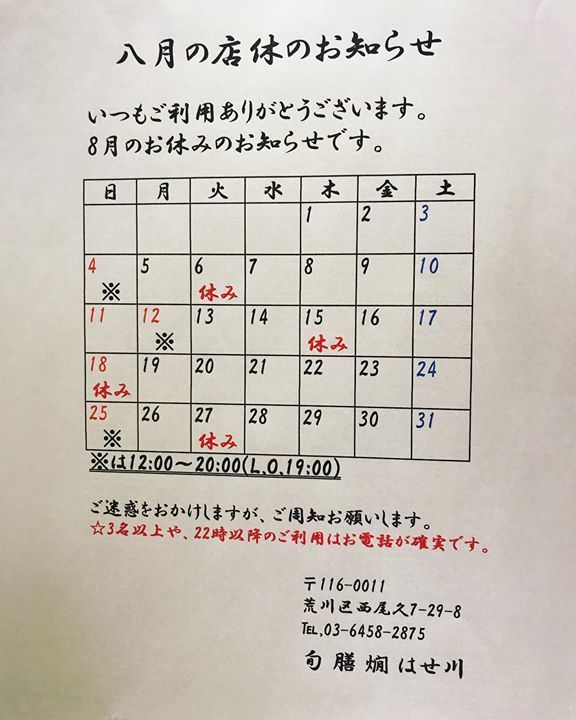 八月の店休のお知らせ
いつもご利用ありがとうございます。
8月のお休みのお知らせです。
日 月 火 水 木 金 土
1 2 3
4 5 6 7 8 9 10
※ 休み
11 12 13 14 15 16 17
※ 休み
18 19 20 21 22 23 24
休み
25 26 27 28 29 30 31
※ 休み
※は12:00～20:00(L.O.19:00)
ご迷惑をおかけしますが、ご周知お願いします。
☆3名以上や、22時以降のご利用はお電話が確実です。
〒116-0011
荒川区西尾久7-29-8
℡,03-6458-2875
旬膳燗はせ川